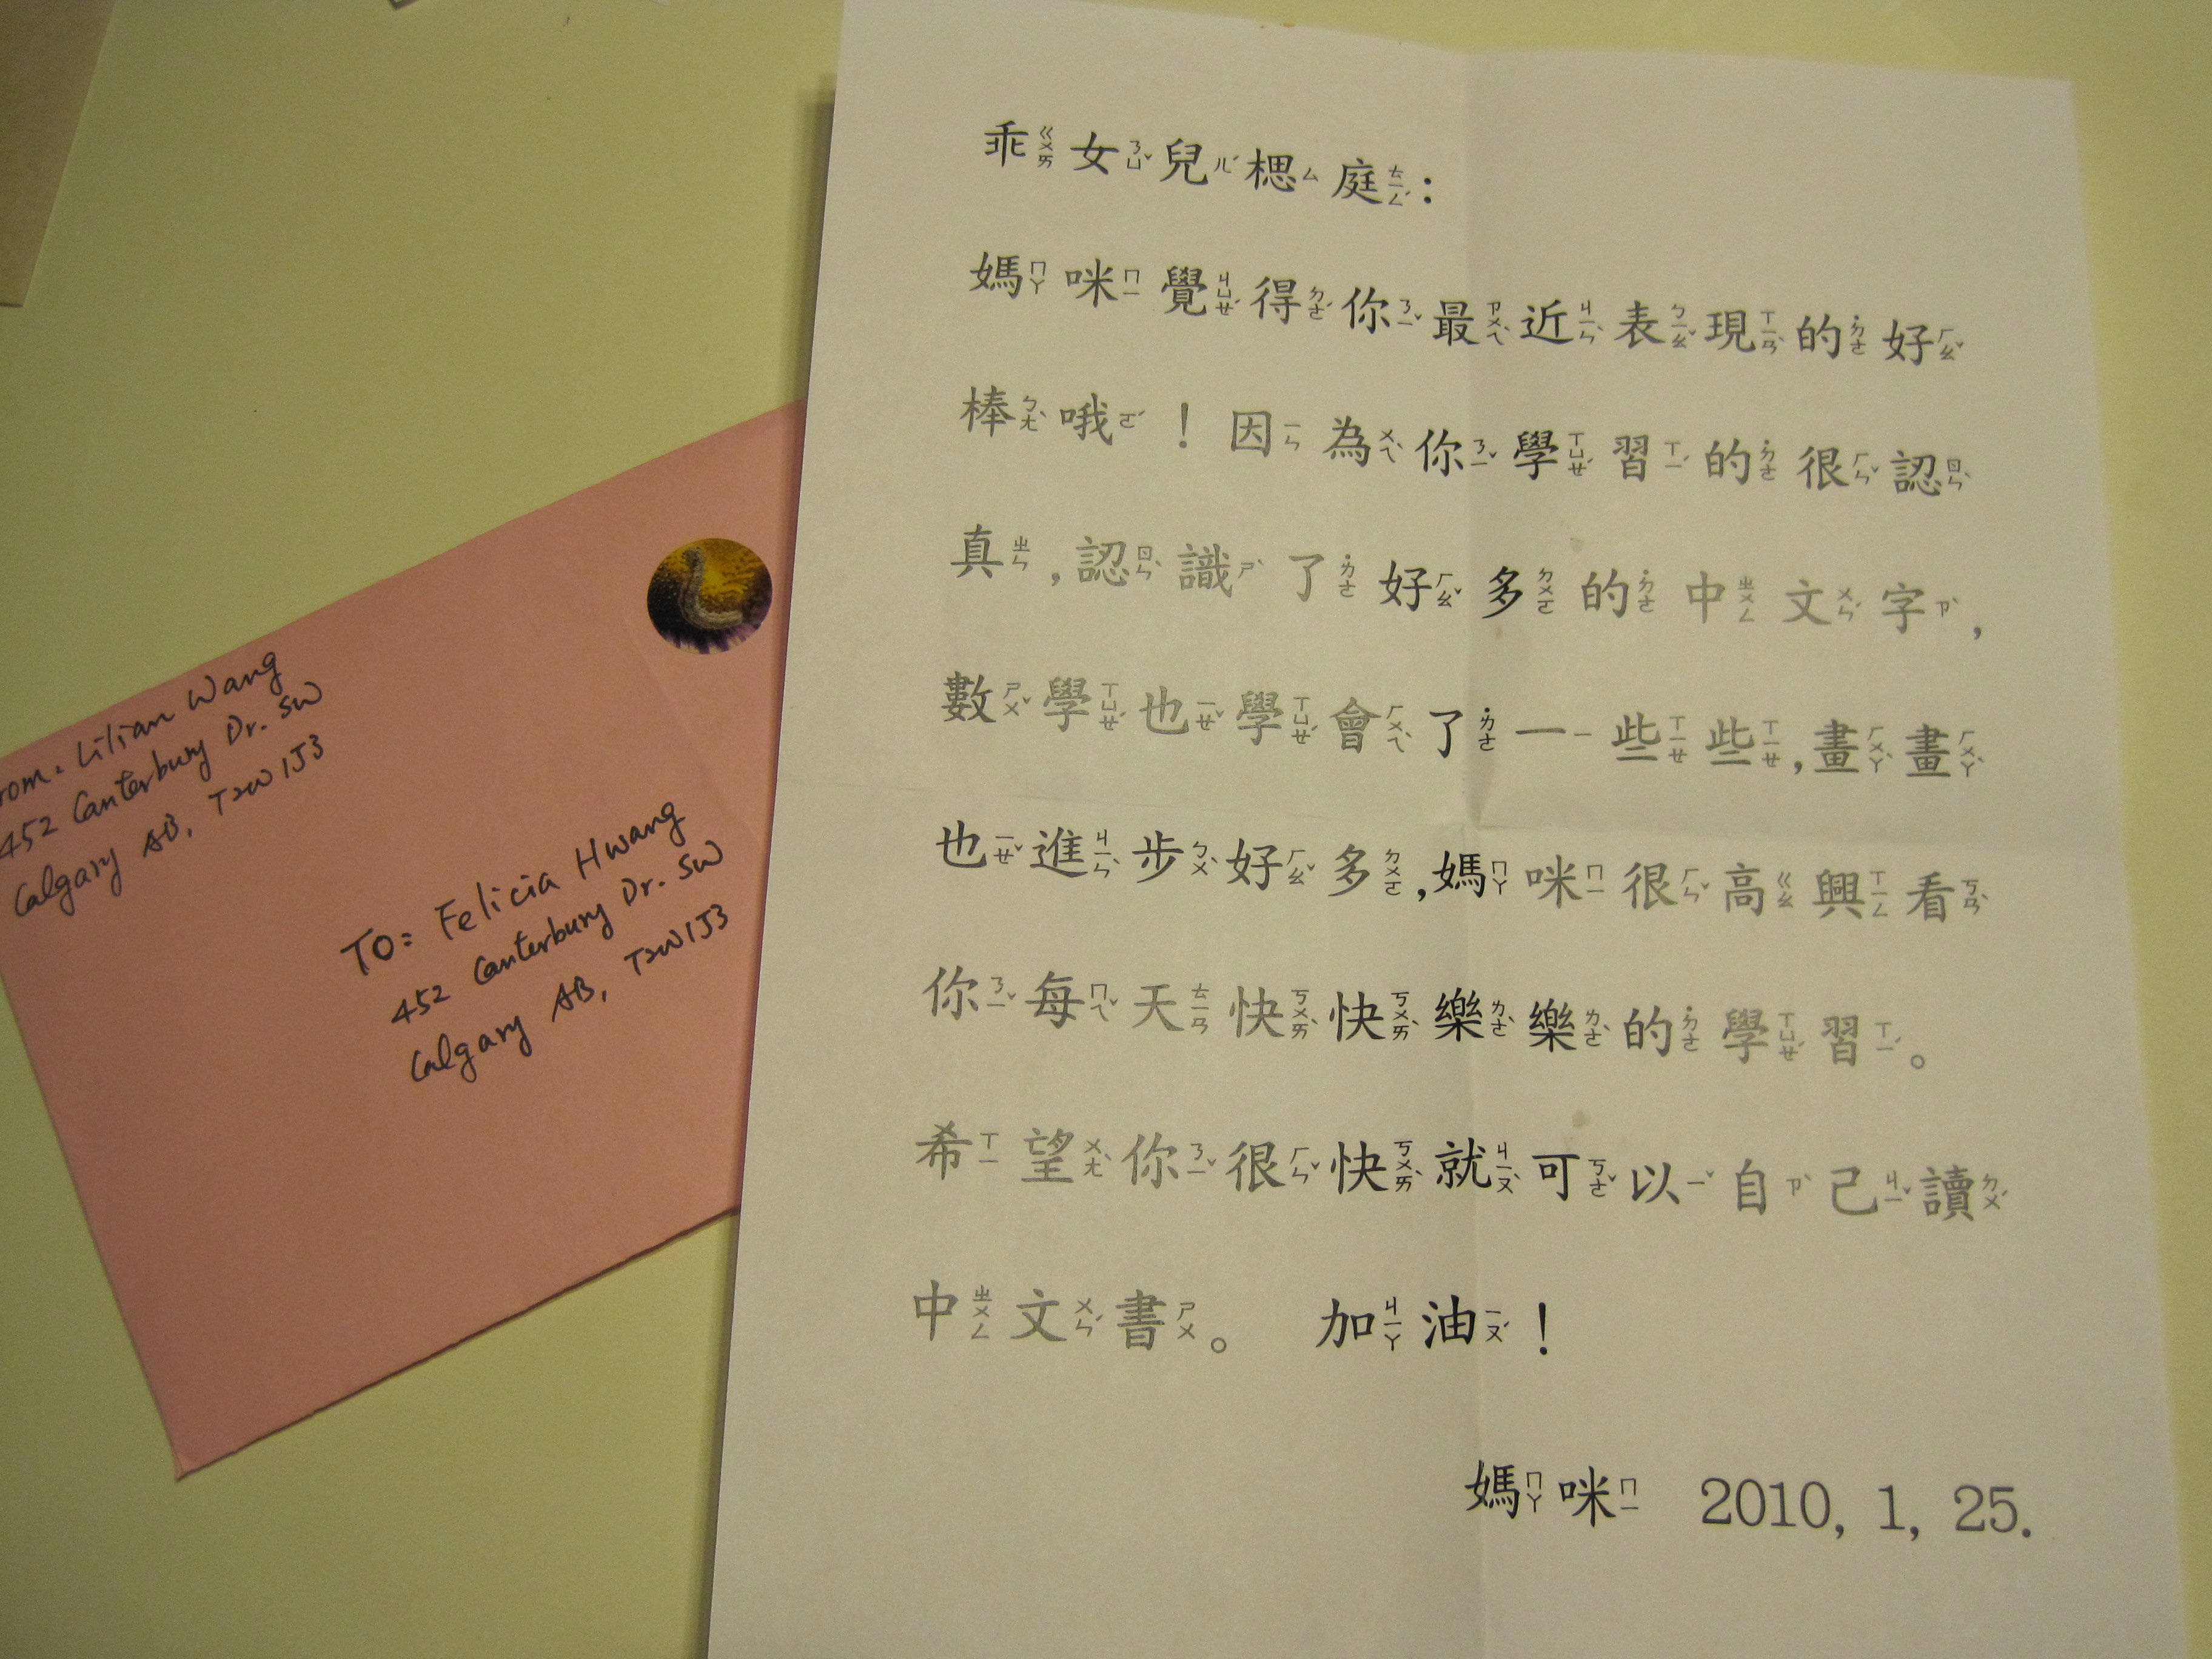 乖女兒楒庭：
媽咪覺得你最近表現的好
棒哦！因為你學習的很認
真，認識了好多的中文字，
數學也學會了一些些，畫畫
也進步好多，媽咪很高興看
你每天快快樂樂的學習。
希望你很快就可以自己讀
中文書。 加油！
媽咪 2010, 1, 25.
rom: Lilian Wang
452 Canterbury Dr. SW
Calgary AB, T2W 1J3
TO: Felicia Hwang
452 Canterbury Dr. SW
Calgary AB, T2W 1J3